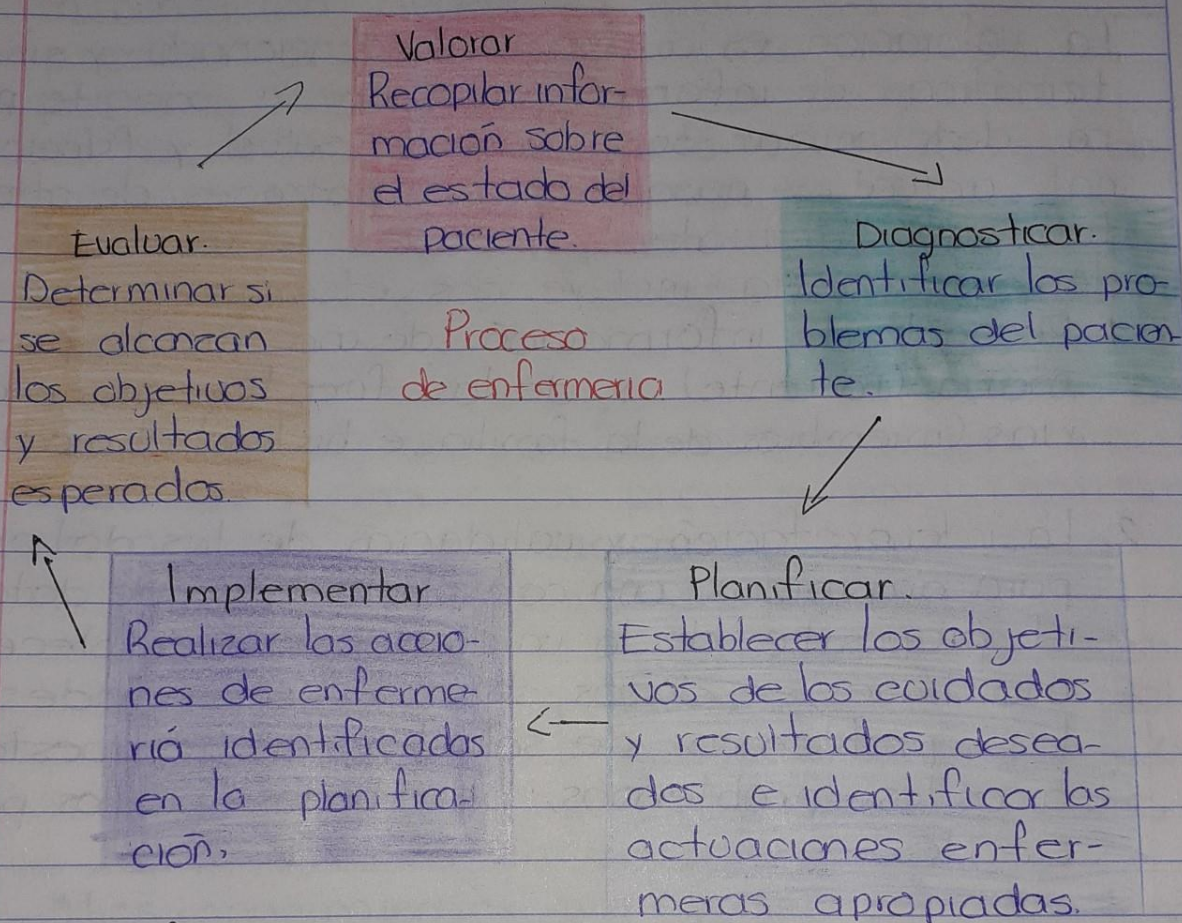 Valorar
Recopilar infor-
mación sobre
el estado del
paciente.
Diagnosticar.
Identificar los pro-
blemas del pacien
te.
Planificar.
Establecer los objeti-
vos de los cuidados
y resultados desea-
dos e identificar las
actuaciones enfer-
meras apropiadas.
Implementar
Realizar las accio-
nes de enferme
ría identificadas
en la planifica-
ción.
Evaluar.
Determinar si
se alcanzan
los objetivos
y resultados
esperados.
Proceso
de enfermeria